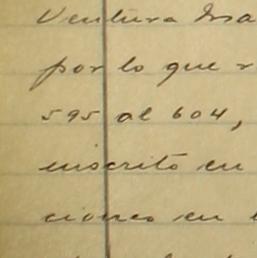 Ventura Isa
por lo que r
595 al 604,
inscrito en
ciones en